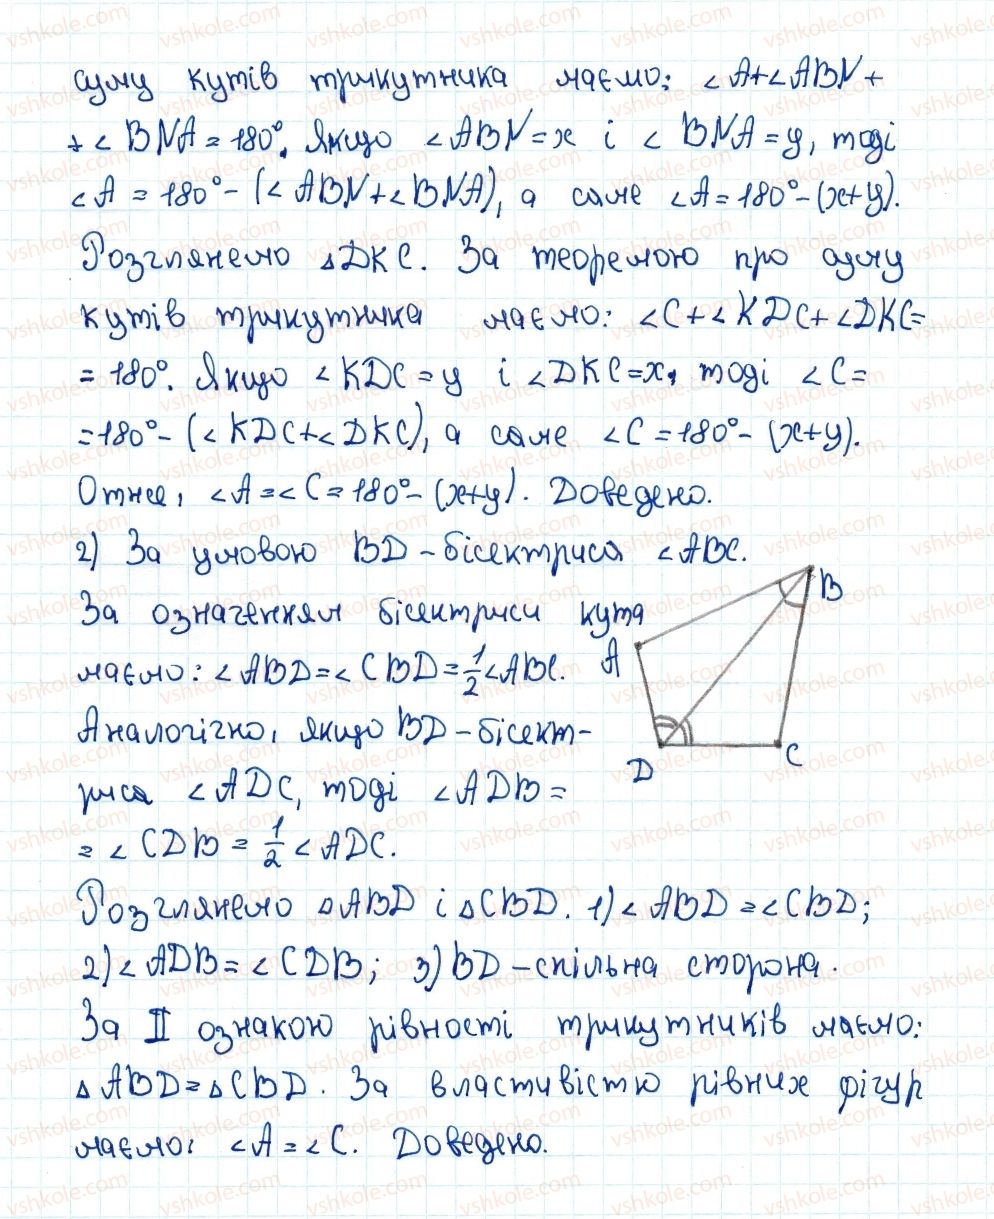 суму кутів трикутника маємо: ∠A+∠ABN+
+∠BNA=180°. Якщо ∠ABN=x і ∠BNA=y, тоді
∠A=180°-(∠ABN+∠BNA), а саме ∠A=180°-(x+y).
Розглянемо △DKC. За теоремою про суму
кутів трикутника маємо: ∠C+∠KDC+∠DKC=
=180°. Якщо ∠KDC=y і ∠DKC=x, тоді ∠C=
=180°-(∠KDC+∠DKC), а саме ∠C=180°-(x+y).
Отже, ∠A=∠C=180°-(x+y). Доведено.
2) За умовою BD-бісектриса ∠ABC.
За означенням бісектриси кута
маємо: ∠ABD=∠CBD=1/2∠ABC.
Аналогічно, якщо BD-бісект-
риса ∠ADC, тоді ∠ADB=
=∠CDB=1/2∠ADC.
B
A
D
C
Розглянемо △ABD і △CBD. 1)∠ABD=∠CBD;
2)∠ADB=∠CDB; 3)BD-спільна сторона.
За II ознакою рівності трикутників маємо:
△ABD=△CBD. За властивістю рівних фігур
маємо: ∠A=∠C. Доведено.
vshkole.com